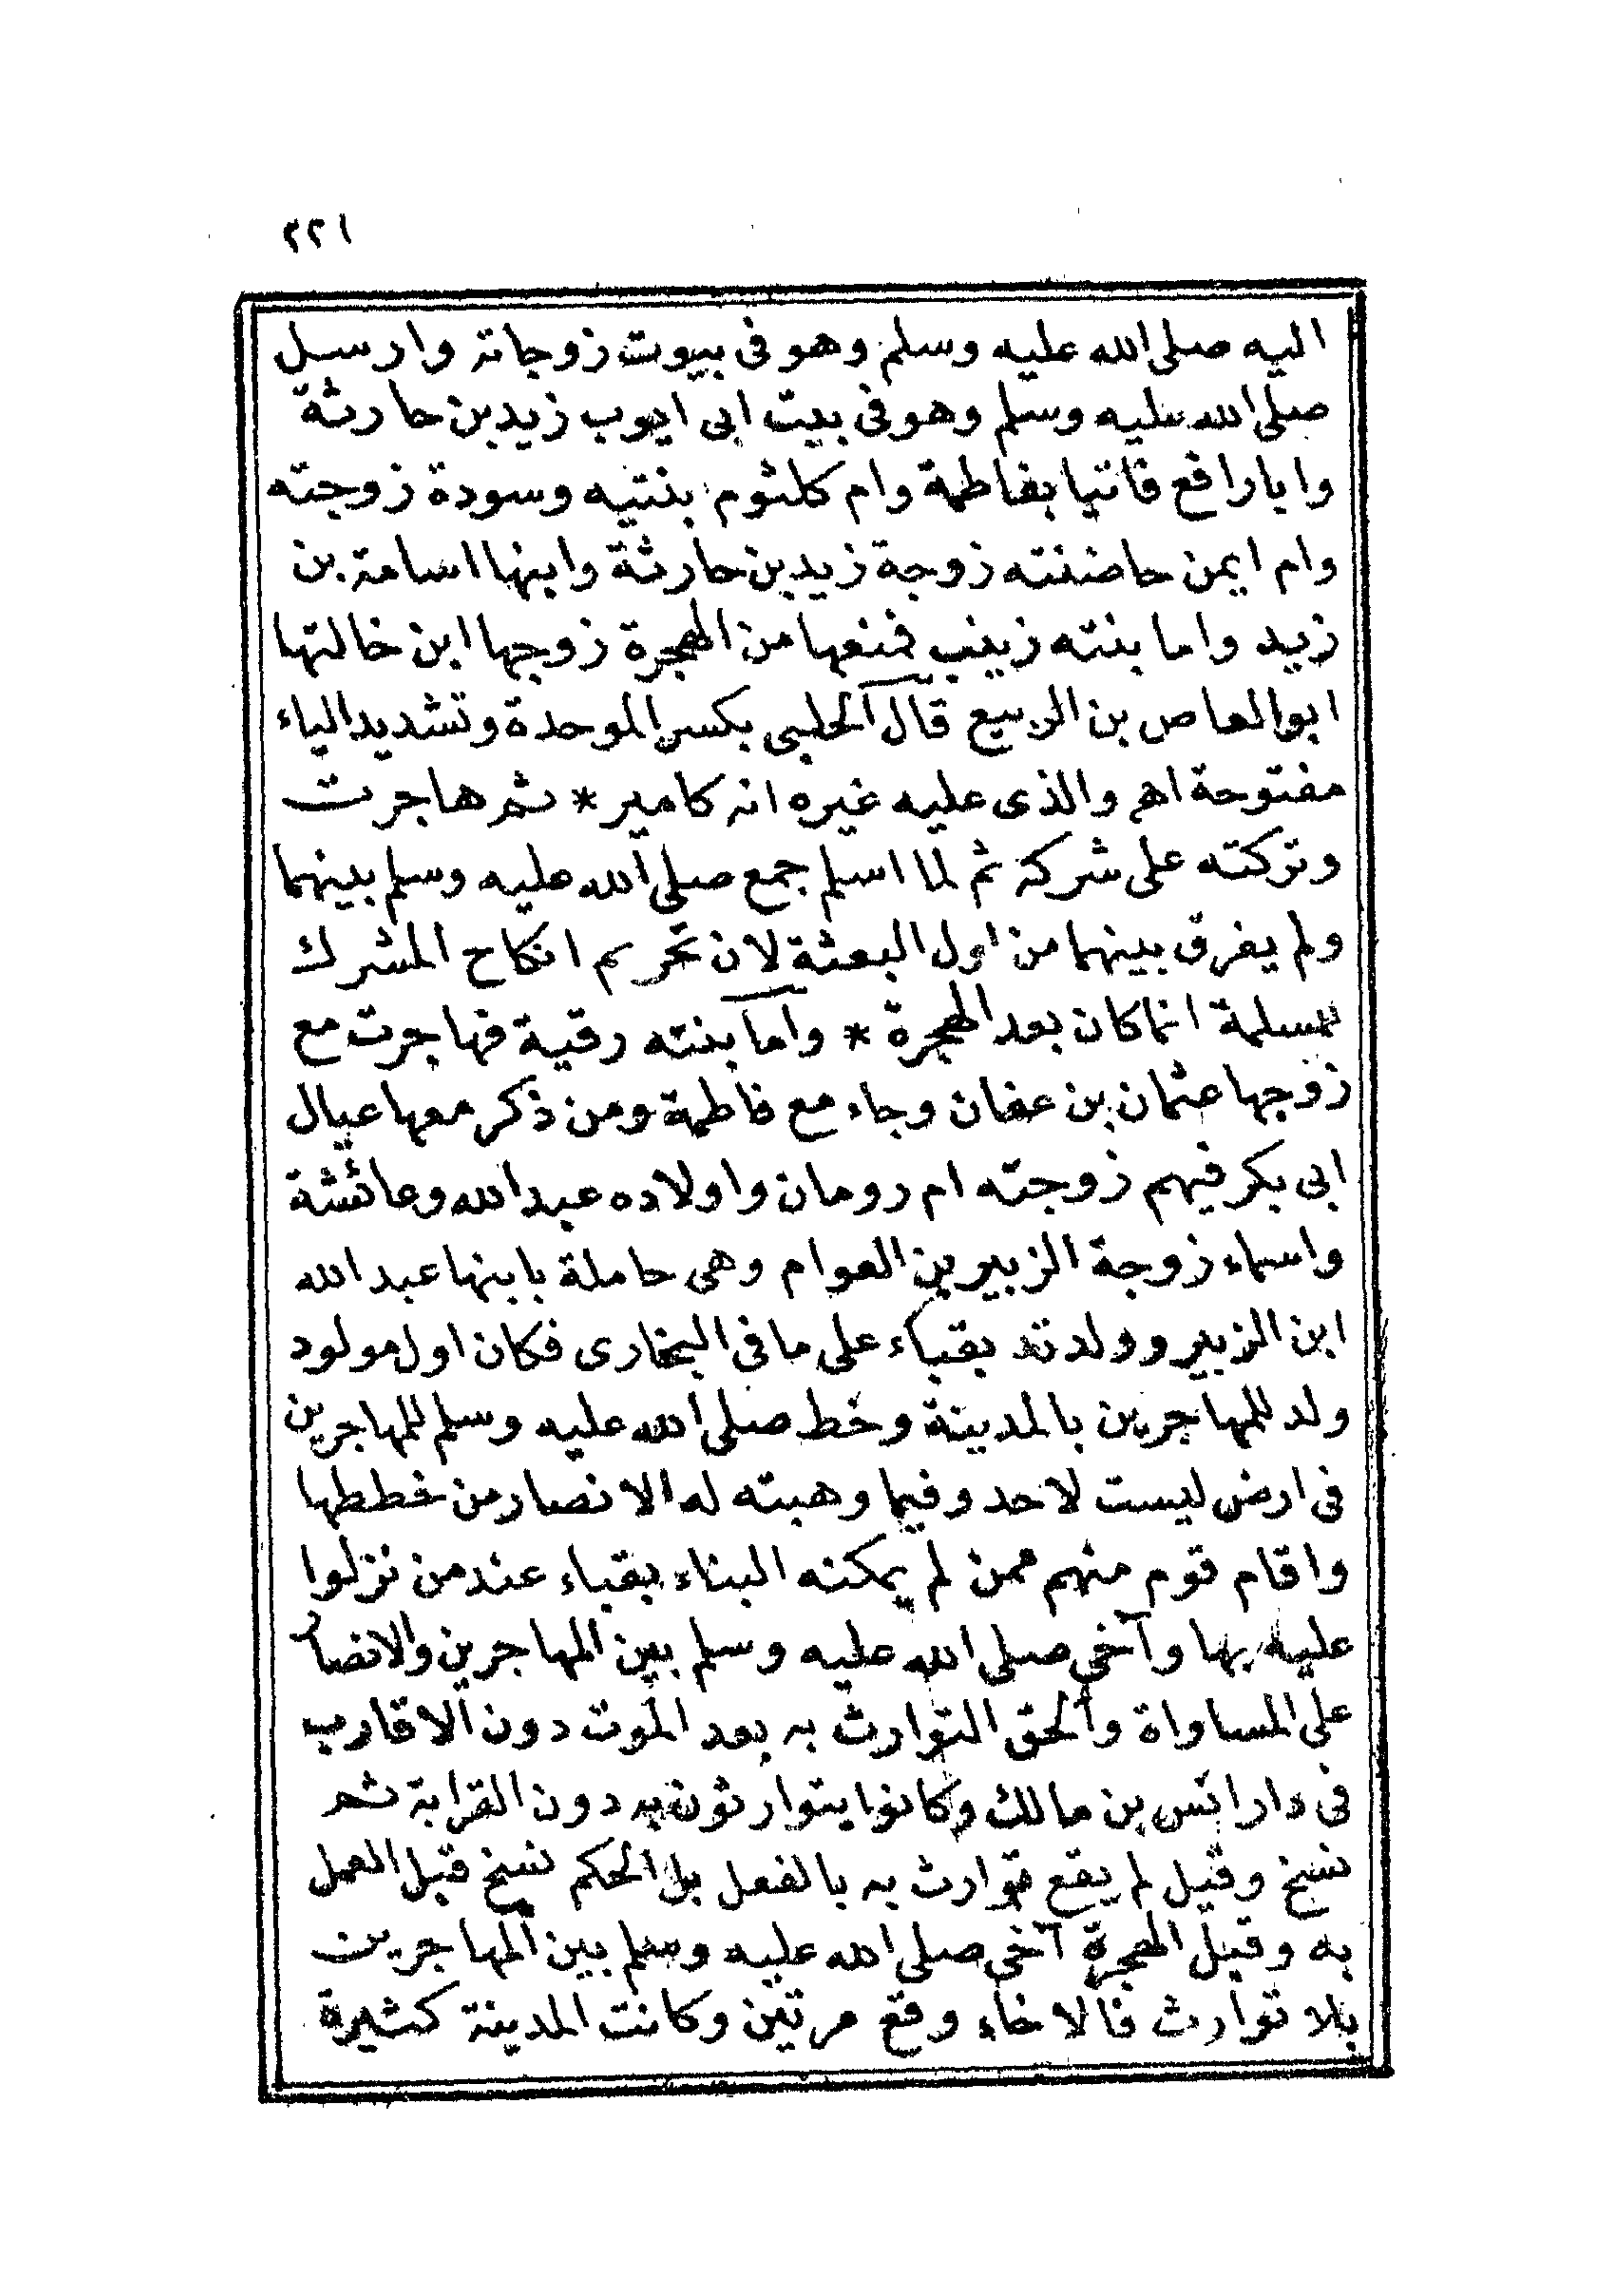 ٢٢١
اليه صلى الله عليه وسلم وهو فى بيوت زوجاته وارسل
صلى الله عليه وسلم وهو فى بيت ابى ايوب زيد بن حارثة
وابا رافع فاتيا بفاطمة وام كلثوم بنتيه وسودة زوجته
وام ايمن حاضنته زوجة زيد بن حارثة وابنها اسامة بن
زيد واما بنته زينب فمنعها من الهجرة زوجها ابن خالتها
ابو العاص بن الربيع قال الحلبى بكسر الموحدة وتشديد الياء
مفتوحة اهـ والذى عليه غيره انه كامير * ثم هاجرت
وتركته على شركه ثم لما اسلم جمع صلى الله عليه وسلم بينهما
ولم يفرق بينهما من اول البعثة لان تحريم انكاح المشرك
للمسلمة انما كان بعد الهجرة * واما بنته رقية فهاجرت مع
زوجها عثمان بن عفان وجاء مع فاطمة ومن ذكر معها عيال
ابى بكر فيهم زوجته ام رومان واولاده عبد الله وعائشة
واسماء زوجة الزبير بن العوام وهى حاملة بابنها عبد الله
ابن الزبير وولدته بقباء على ما فى البخارى فكان اول مولود
ولد للمهاجرين بالمدينة وخط صلى الله عليه وسلم للمهاجرين
فى ارض ليست لاحد وفيما وهبته له الانصار من خططها
واقام قوم منهم ممن لم يمكنه البناء بقباء عند من نزلوا
عليه بها وآخى صلى الله عليه وسلم بين المهاجرين والانصار
على المساواة والحق التوارث به بعد الموت دون الاقارب
فى دار انس بن مالك وكانوا يتوارثون به دون القرابة ثم
نسخ وقيل لم يقع توارث به بالفعل بل الحكم نسخ قبل العمل
به وقبل الهجرة آخى صلى الله عليه وسلم بين المهاجرين
بلا توارث فالاخاء وقع مرتين وكانت المدينة كثيرة